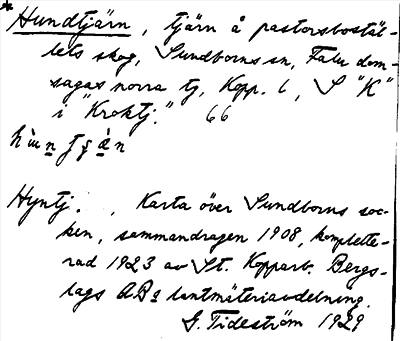 Hundtjärn, tjärn å pastorsbostäl-
lets skog, Sundborns sn, Falu dom-
sagas norra tg, Kopp. l, S "K"
i "Kroktj." 66
Hyntj., Karta över Sundborns soc-
ken, sammandragen 1908, komplette-
rad 1923 av St. Kopparb. Bergs-
lags ABs lantmäteriavdelning.
G. Tideström 1929